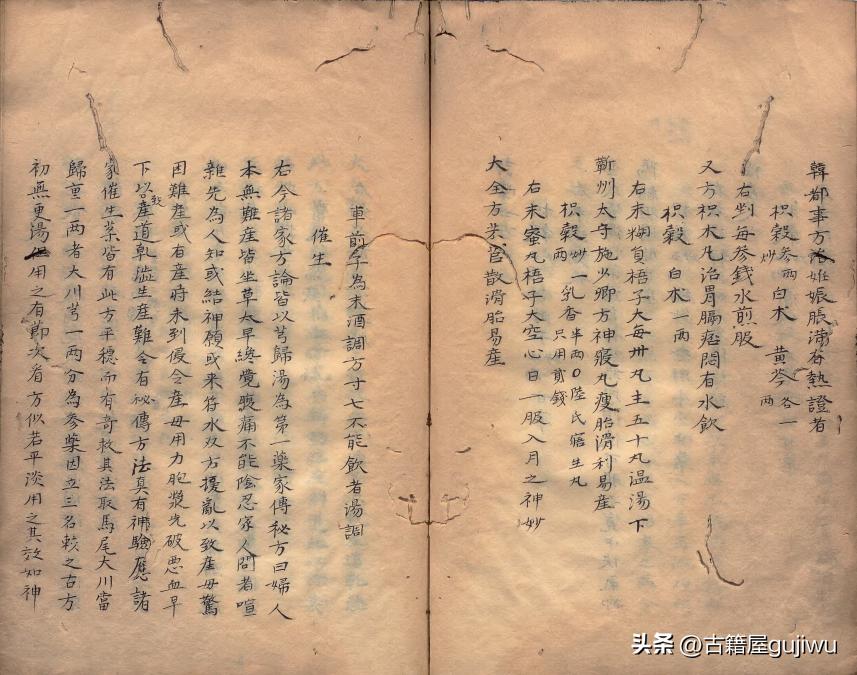 韓都事方治姙娠脹滿者熱證者
枳殼炒參兩 白朮 黃芩各一兩
右剉每參錢水煎服
又方枳朮凡治胃膈痞悶有水飲
枳殼 白朮一兩
右末糊負梧子大每卅丸主五十丸温湯下
蘄州太守施少卿方神寢丸瘦胎滑利易產
枳殼炒一兩 乳香半兩〇陸氏寤生丸只用貳錢
右末蜜丸梧子大空心日一服入月之神妙
大全方 散滑胎易産
車前子為末酒調方寸七不能飲者湯調
催生
右今諸家方論皆以芎歸湯為第一藥家傳秘方曰婦人
本無難産皆坐草太早終覺腹痛不能隐忍家人問者喧
雜先為人知或結神願或来符水双方擾亂以致産母驚
因難産或有産時未到侵令産母用力胞漿先破惡血早
下以致産道乾澁生産難令有秘傳方法真有神驗應諸
家催生药皆有此方平穩而有奇救其法取馬尾大川當
歸重一两者大川芎一两分為參藥因立三名較之古方
初無更湯但用之有節次看方似若平淡用之其效如神
头条 @古籍屋gujiwu